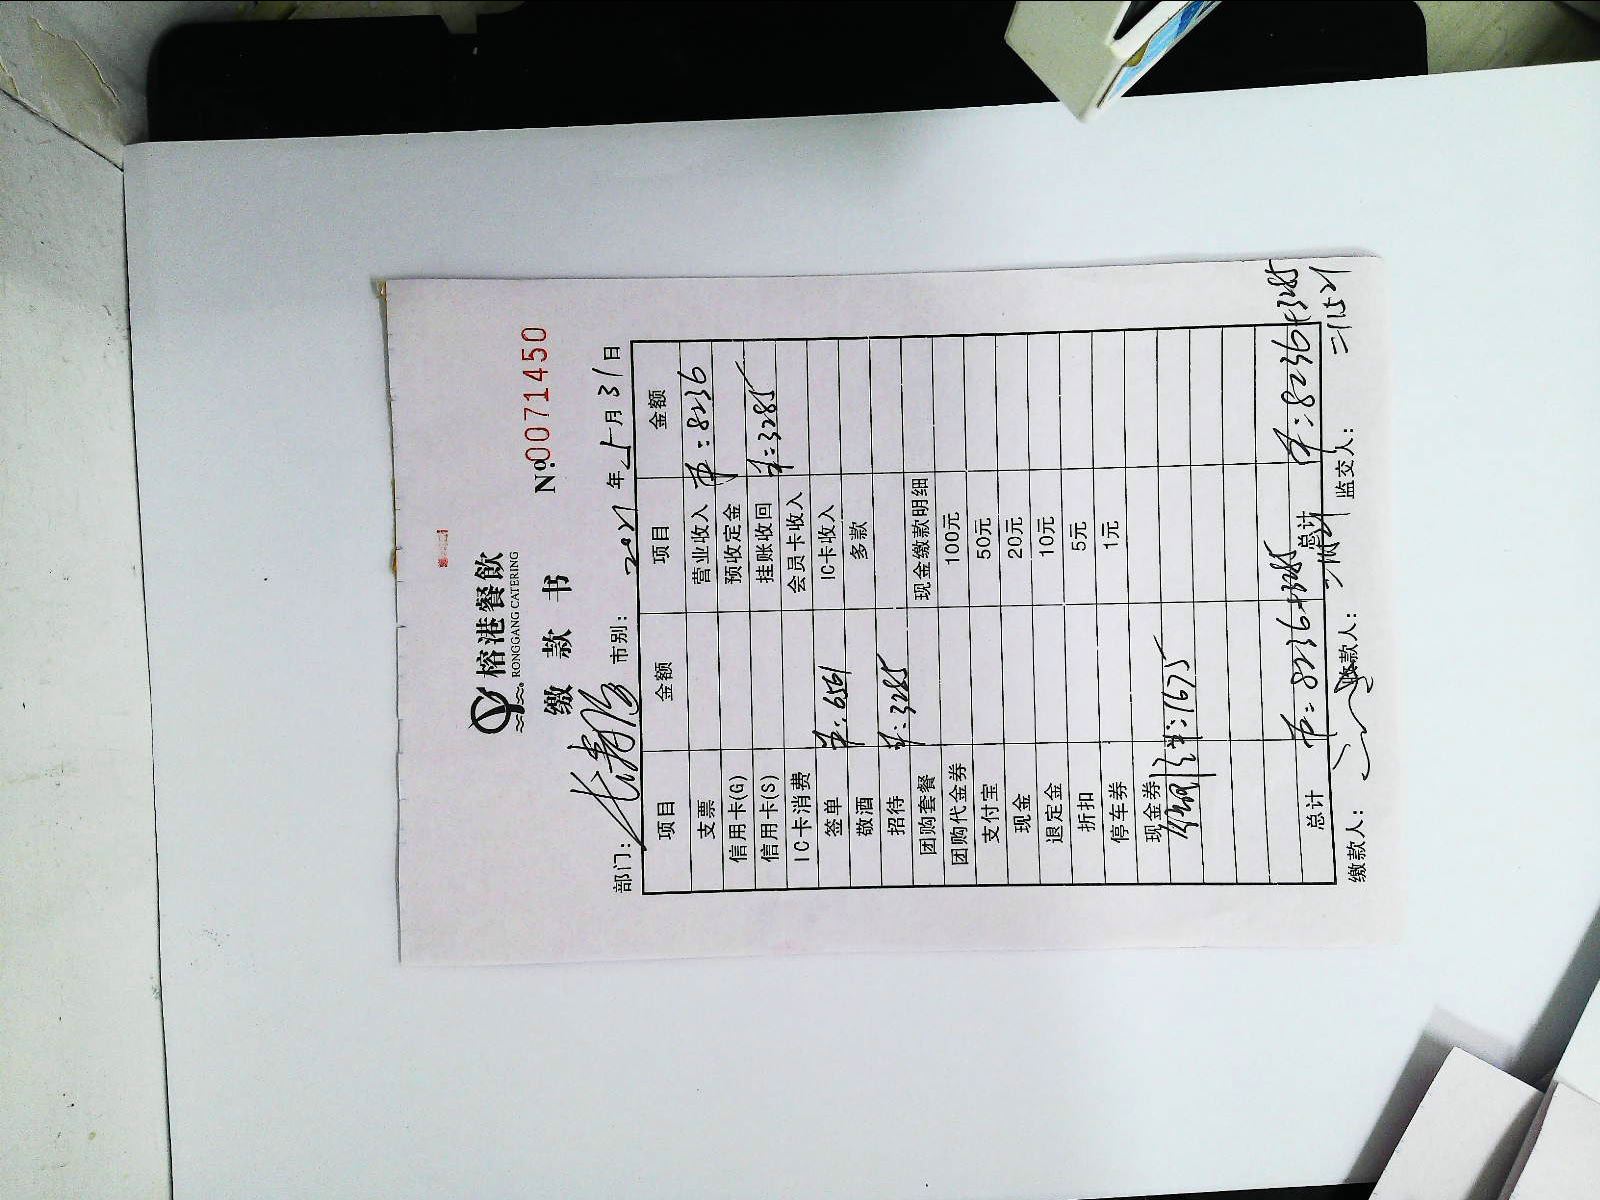 榕港餐飲
RONGGANG CATERING
缴款书
№0071450
部门： 市别： 2021年5月31日
项目 金额 项目 金额
支票 营业收入 ：8236
信用卡(G) 预收定金
信用卡(S) 挂账收回 ：3285
IC卡消费 会员卡收入
签单 ：6561 IC卡收入
敬酒 多款
招待 ：3285
团购套餐 现金缴款明细
团购代金券 100元
支付宝 50元
现金 20元
退定金 10元
折扣 5元
停车券 1元
现金券
：1675
总计 ：8236+3285 总计 ：8236+3285
=11521 =11521
缴款人： 收款人： 监交人：